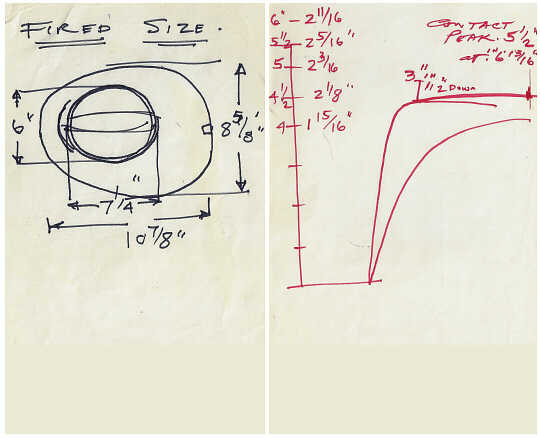 FIRED SIZE.
6"
8 5/8"
7 1/4"
10 7/8"
6" - 2 11/16
5 1/2 2 5/16"
5 2 3/16
4 1/2 2 1/8"
4 1 15/16"
CONTACT
PEAK. 5 1/2"
at 6 13/16"
3"
1 1/2 DOWN